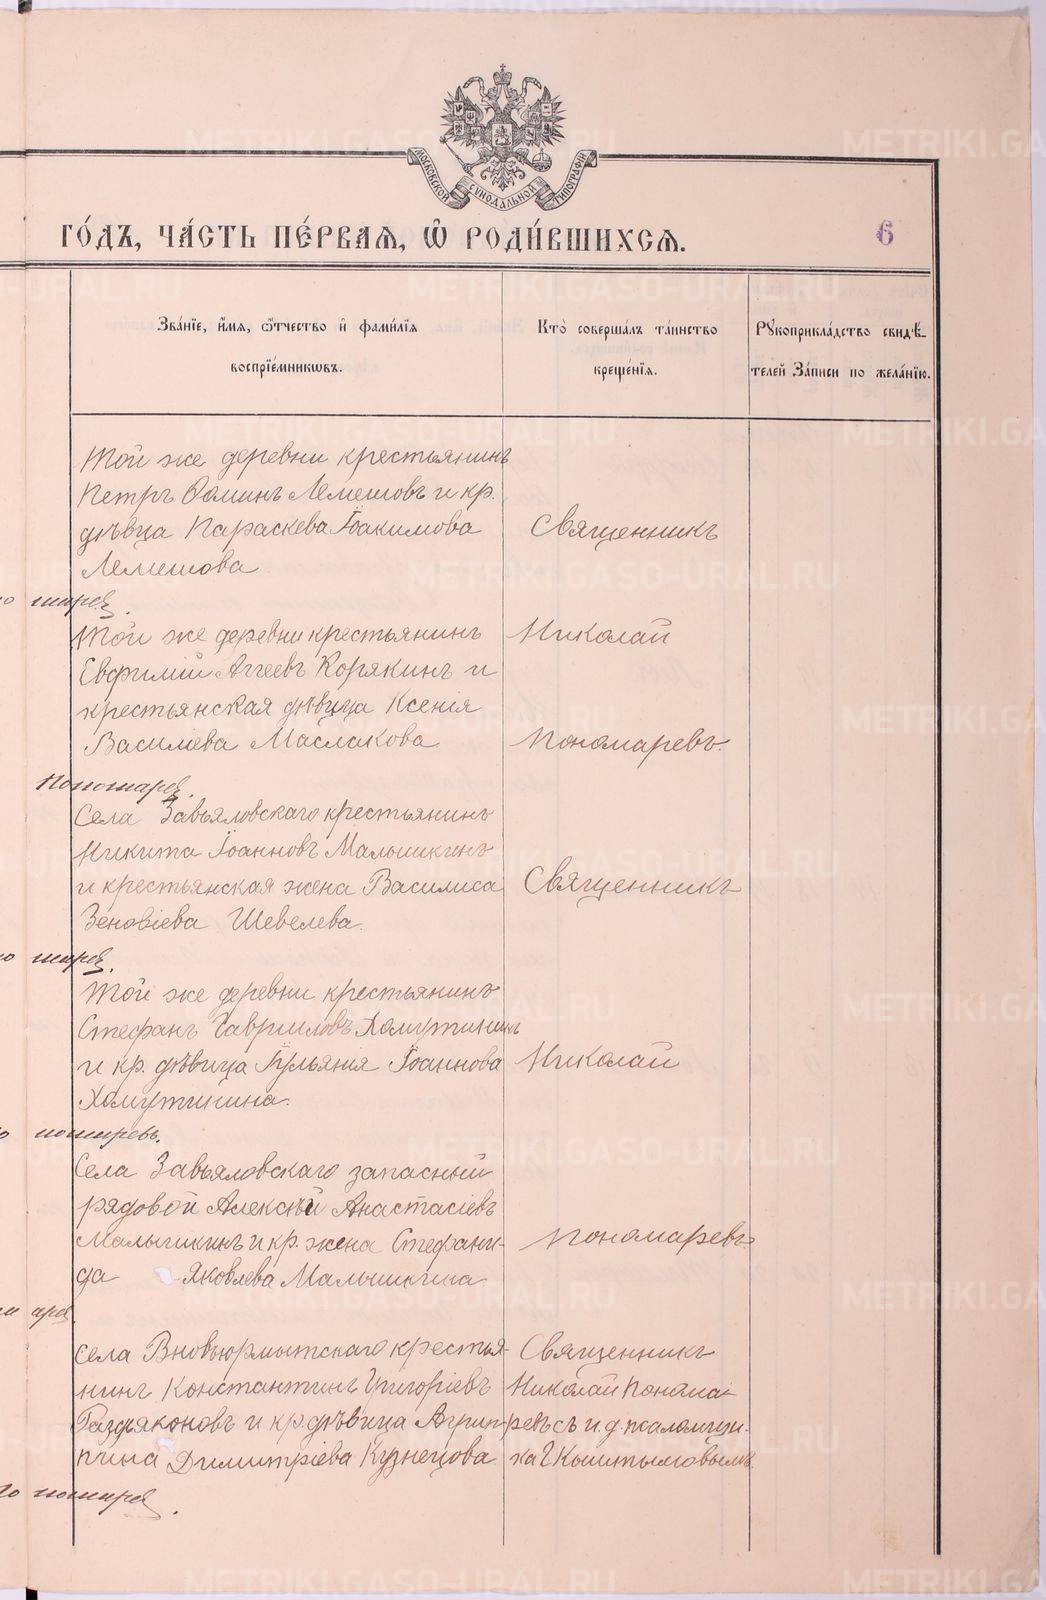 МОСКОВСКОЙ СѴНОДАЛЬНОЙ ТИПОГРАФІИ
ГО́ДЪ, ЧА́СТЬ ПЕ́РВАѦ, Ѡ҆ РОДИ́ВШИХСѦ.
6
Зва́нїе, и҆́мѧ, ѻ҆́тчество и҆ фами́лїѧ
воспрїе́мникѡвъ.
Кто̀ соверша́лъ та́инство
креще́нїѧ.
Рꙋкоприкла́дство свидѣ́-
телей За́писи по жела́нїю.
Той же деревни крестьянинъ
Петръ Ѳоминъ Лемешовъ и кр.
дѣвца Параскева Іоакимова
Лемешова
Священникъ
Той же деревни крестьянинъ
Евфимій Аггеевъ Корякинъ и
крестьянская дѣвица Ксенія
Василіева Маслакова
Николай
Пономаревъ.
Села Завьяловскаго крестьянинъ
Никита Іоанновъ Малышкинъ
и крестьянская жена Василиса
Зеновіева Шевелева.
Священникъ
Той же деревни крестьянинъ
Стефанъ Гавриловъ Хомутининъ
и кр. дѣвица Іульянія Іоаннова
Хомутинина.
Николай
Села Завьяловскаго запасный
рядовой Алексѣй Анастасіевъ
Малышкинъ и кр. жена Стефани-
да Яковлева Малышкина
Пономаревъ
Села Вновьюрмытскаго крестья-
нинъ Константинъ Григоріевъ
и кр. дѣвица Агрип-
пина Димитріева Кузнецова
Священникъ
Николай Понома-
ревъ съ и. д. псаломщи-
ка Г. Кыштымовымъ
METRIKI.GASO-URAL.RU